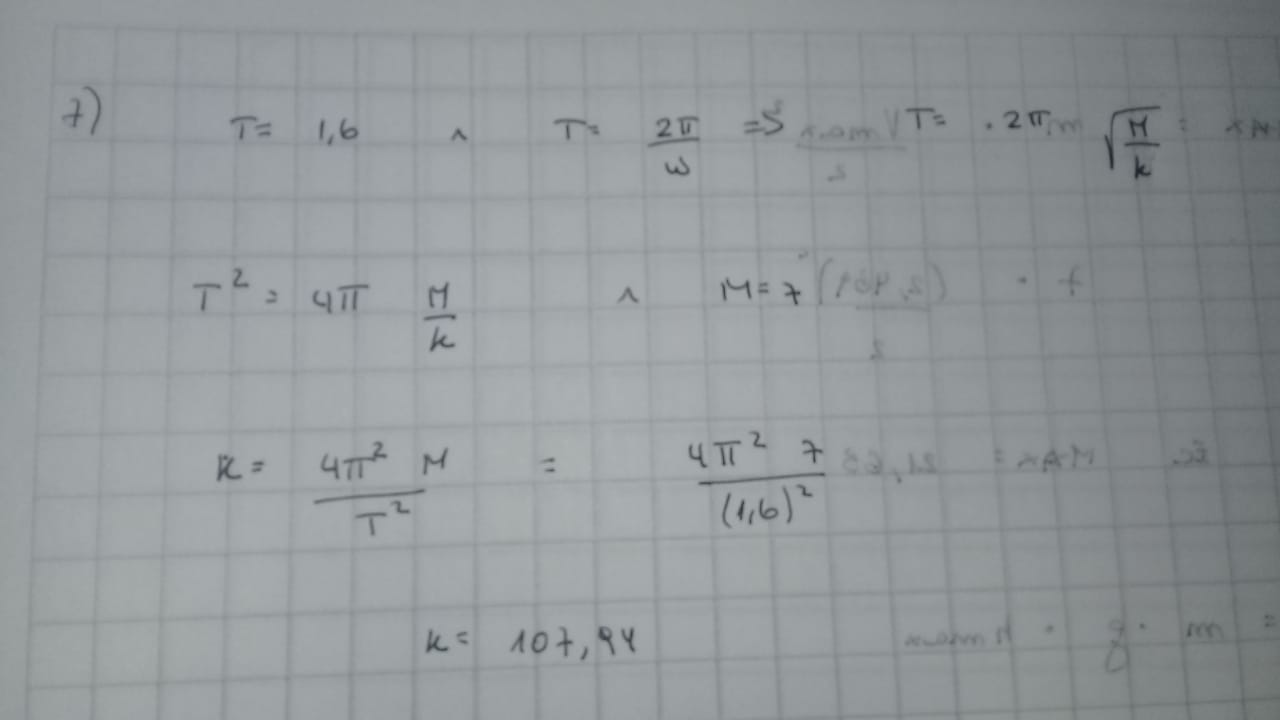 7) T= 1,6 ^ T= 2π/ω => T= . 2π √(M/k)
T² = 4π M/k ^ M= 7
K= 4π² M / T² = 4π² 7 / (1,6)²
k= 107,94